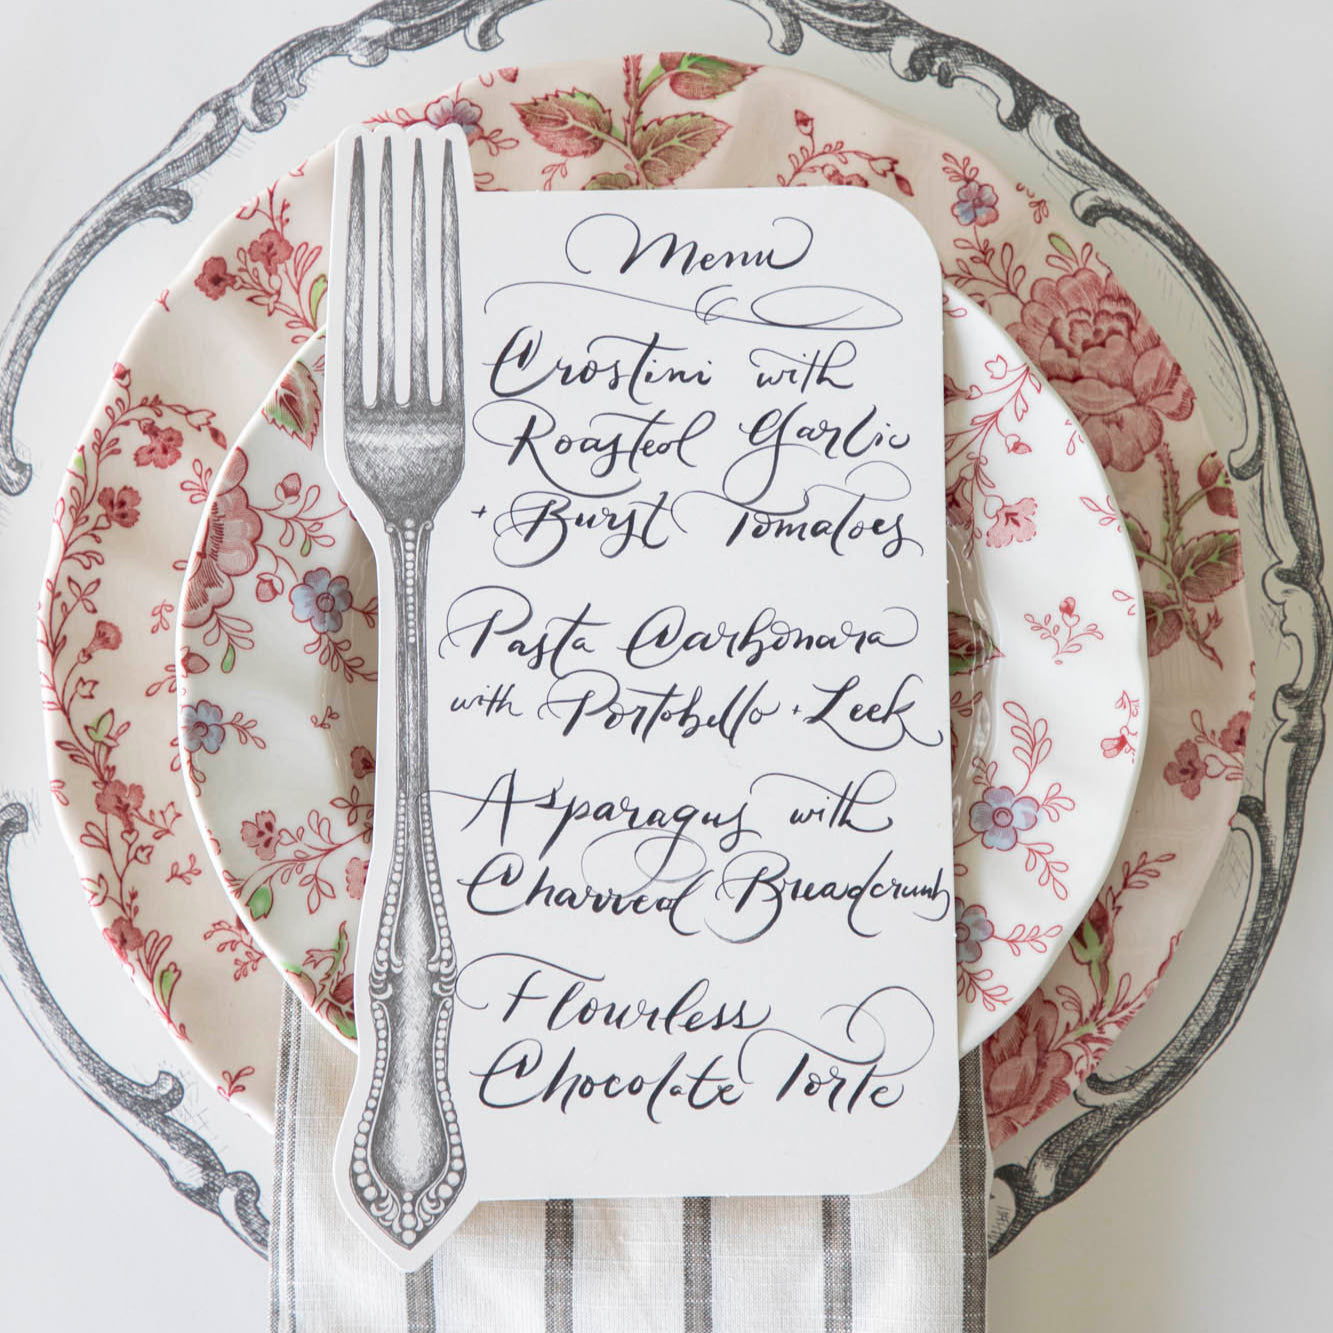 Menu
Crostini with
Roasted Garlic
+ Burst Tomatoes
Pasta Carbonara
with Portobello + Leek
Asparagus with
Charred Breadcrumb
Flourless
Chocolate Torte